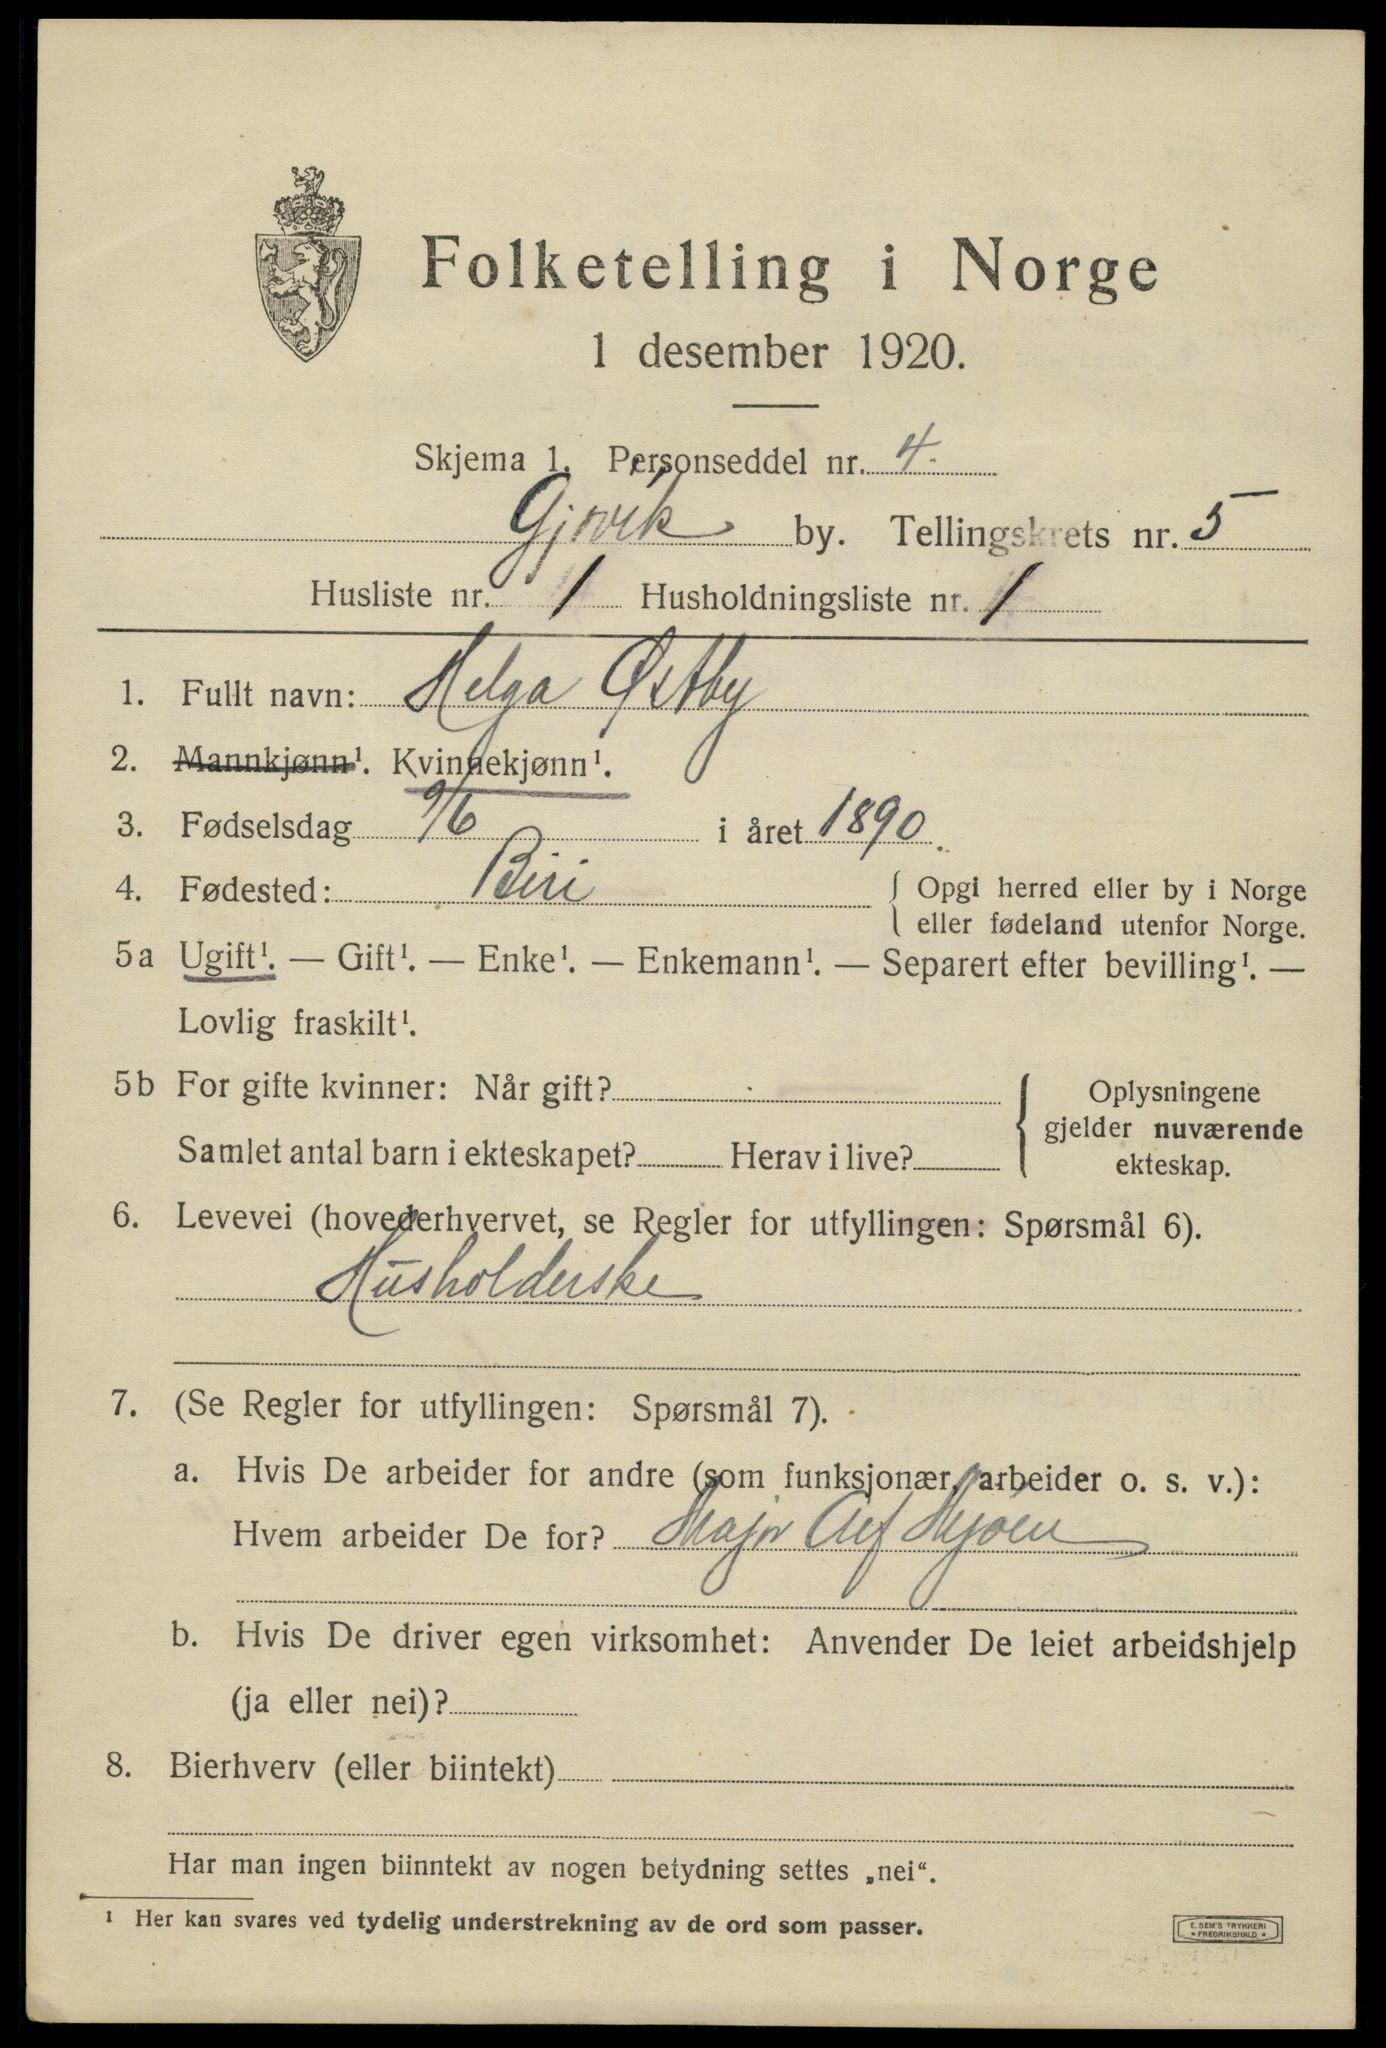 Folketelling i Norge
1 desember 1920.
Skjema 1. Personseddel nr. 4.
Gjøvik by. Tellingskrets nr. 5
Husliste nr. 1 Husholdningsliste nr. 1
1. Fullt navn: Helga Østby
2. Mannkjønn¹. Kvinnekjønn¹.
3. Fødselsdag 9/6 i året 1890.
4. Fødested: Biri { Opgi herred eller by i Norge
eller fødeland utenfor Norge.
5a Ugift¹. — Gift¹. — Enke¹. — Enkemann¹. — Separert efter bevilling¹. —
Lovlig fraskilt¹.
5b For gifte kvinner: Når gift? { Oplysningene
gjelder nuværende
Samlet antal barn i ekteskapet? Herav i live?
ekteskap.
6. Levevei (hovederhvervet, se Regler for utfyllingen: Spørsmål 6).
Husholderske
7. (Se Regler for utfyllingen: Spørsmål 7).
a. Hvis De arbeider for andre (som funksjonær, arbeider o. s. v.):
Hvem arbeider De for? Major Alf Mjøen
b. Hvis De driver egen virksomhet: Anvender De leiet arbeidshjelp
(ja eller nei)?
8. Bierhverv (eller biintekt)
Har man ingen biinntekt av nogen betydning settes „nei“.
¹ Her kan svares ved tydelig understrekning av de ord som passer.
E. SEM'S TRYKKERI
• FREDRIKSHALD •